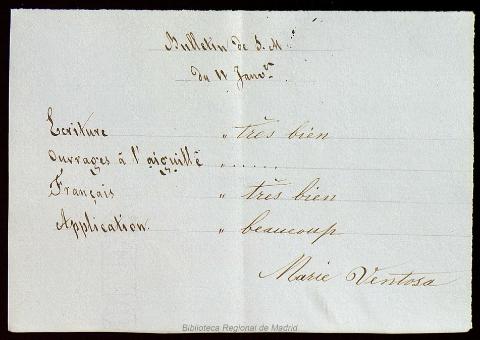 Bulletin de S. M.
du 11 Janvier
Ecriture " très bien
Ouvrages à l'aiguille " . . . . . .
Français " très bien
Application. " beaucoup
Marie Ventosa
Biblioteca Regional de Madrid